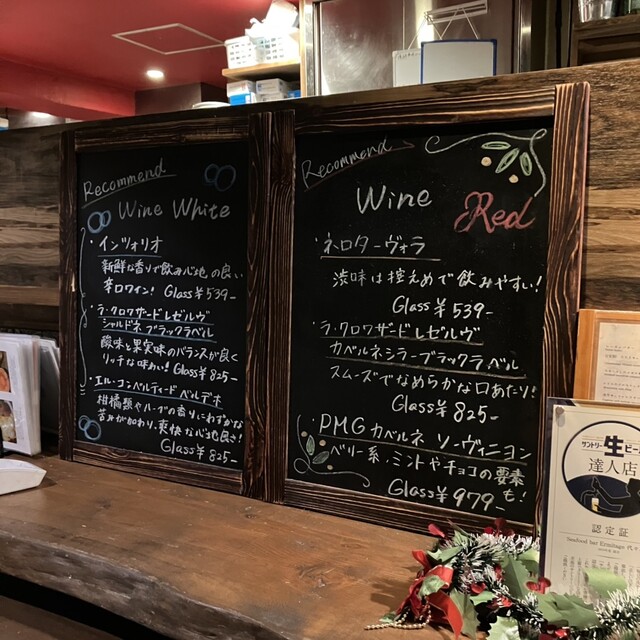 Recommend
Wine White
・インツォリオ
新鮮な香りで飲み心地の良い
辛口ワイン! Glass¥539-
・ラ・クロワザードレゼルヴ
シャルドネ ブラックラベル
酸味と果実味のバランスが良く
リッチな味わい! Glass¥825-
・エル・コンベルティード ベルデホ
柑橘類やハーブの香りにわずかな
苦みが加わり、爽快な心地良さ!
Glass¥825-
Recommend
Wine Red
・ネロターヴォラ
渋味は控えめで飲みやすい!
Glass¥539-
・ラ・クロワザードレゼルヴ
カベルネシラーブラックラベル
スムーズでなめらかな口あたり!
Glass¥825-
・PMGカベルネ ソーヴィニヨン
ベリー系・ミントやチョコの要素も!
Glass¥979-
サントリー生ビール
達人店
認定証
Seafood bar Ermitage